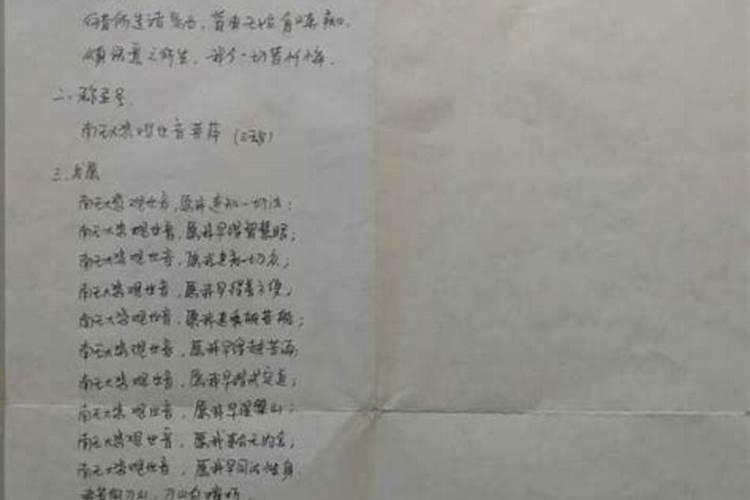 往昔所造诸恶业，皆由无始贪嗔痴，
从身语意之所生，我今一切皆忏悔。
二、称圣号
南无大悲观世音菩萨（三称）
三、发愿
南无大悲观世音，愿我速知一切法；
南无大悲观世音，愿我早得智慧眼；
南无大悲观世音，愿我速度一切众；
南无大悲观世音，愿我早得善方便；
南无大悲观世音，愿我速乘般若船；
南无大悲观世音，愿我早得越苦海；
南无大悲观世音，愿我早得戒定道；
南无大悲观世音，愿我早得登山；
南无大悲观世音，愿我 无为舍，
南无大悲观世音，愿我早同法性身
我若向刀山，刀山自摧折，